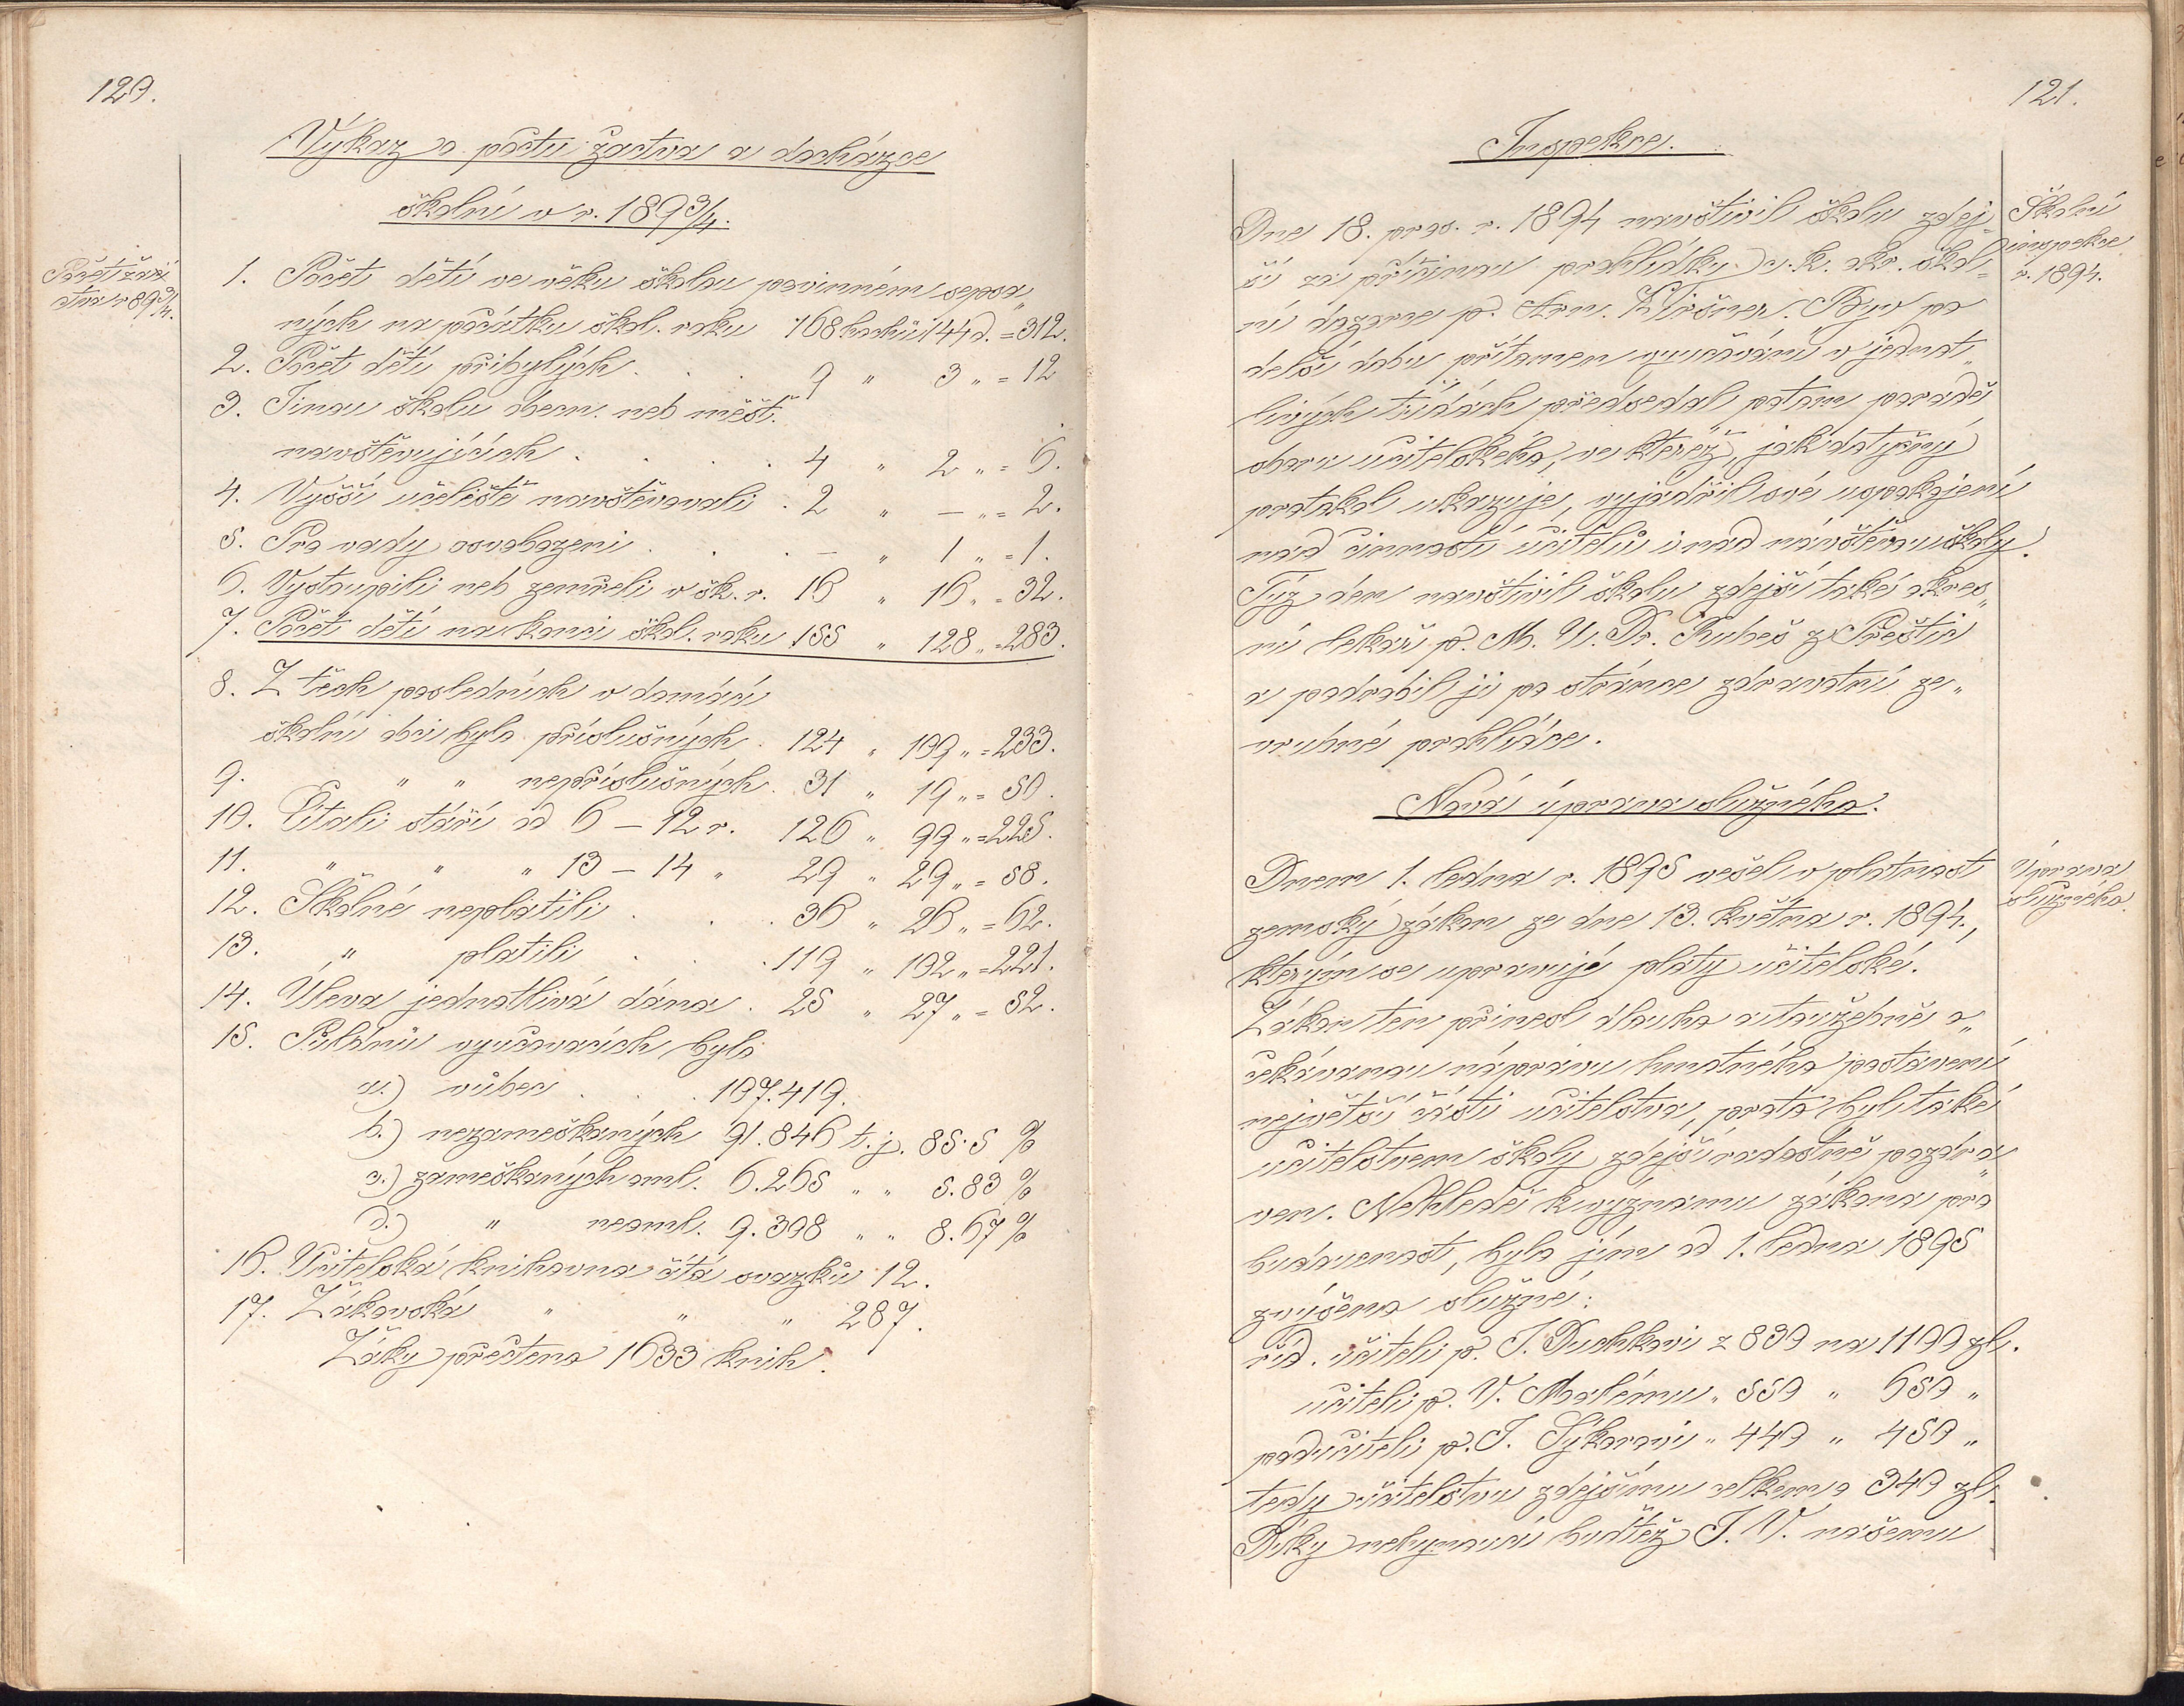 120.
Výkaz o počtu žactva a docházce
školní v r. 1893/4.
Počet žac-
tva r. 893/4.
1. Počet dětí ve věku školou povinném sepsa„
ných na počátku škol. roku 168 hochů 144 d. = 312.
2. Počet dětí přibylých . . . 9 " 3 " = 12
3. Jinou školu obecn. neb měšť.
navštěvujících . . . . 4 " 2 " = 6.
4. Vyšší učeliště navštěvovali . 2 " — " = 2.
5. Pro vady osvobozeni . . . — " 1 " = 1.
6. Vystoupili neb zemřeli v šk. r. 16 " 16 " = 32.
7. Počet dětí na konci škol. roku 155 " 128 " = 283.
8. Z těch posledních v domácí
školní obci bylo příslušných . 124 " 109 " = 233.
9. " " nepříslušných . 31 " 19 " = 50.
10. Čítali stáří od 6 – 12 r. 126 " 99 " = 225.
11. " " " 13 – 14 " 29 " 29 " = 58.
12. Školné neplatili . . . 36 " 26 " = 62.
13. " platili . . . 119 " 102 " = 221.
14. Úleva jednotlivá dána . 25 " 27 " = 52.
15. Půldnů vyučovacích bylo
a.) vůbec . . . 107.419.
b.) nezameškaných 91.846 t. j. 85·5 %
c.) zameškaných oml. 6.265 " " 5.83 %
d.) " neoml. 9.308 " " 8.67 %
16. Učitelská knihovna čítá svazků 12.
17. Žákovská " " " 287.
Žáky přečteno 1633 knih.
121.
Inspekce.
Školní
inspekce
r. 1894.
Dne 18. pros. r. 1894 navštívil školu zdej-
ší za příčinou prohlídky c. k. okr. škol-
ní dozorce p. Arn. Kiršner. Byv po
delší dobu přítomen vyučování v jednot„
livých třídách předsedal potom poradě
sboru učitelského, ve kteréž, jak dotyčný
protokol ukazuje, vyjádřil své uspokojení
nad činností učitelů i nad návštěvou školy.
Týž den navštívil školu zdejší také okres„
ní lekař p. M. U. Dr. Kubeš z Přeštic
a podrobil ji po stránce zdravotní ze„
vrubné prohlídce.
Nová úprava služného.
Úprava
služného
Dnem 1. ledna r. 1895 vešel v platnost
zemský zákon ze dne 13. května r. 1894.,
kterým se upravují platy učitelské.
Zákon ten přinesl dlouho a toužebně o„
čekávanou nápravu hmotného postavení
největší části učitelstva, proto byl také
učitelstvem školy zdejší radostně pozdra„
ven. Nehledě k významu zákona pro
budoucnost, bylo jím od 1. ledna 1895
zvýšeno služné:
říd. učiteli p. J. Duchkovi z 830 na 1100 zl.
učiteli p. V. Malému " 550 " 650 "
podučiteli p. J. Sýkorovi " 440 " 450 "
tedy učitelstvu zdejšímu celkem o 340 zl.
Díky nehynoucí budtež J. V. našemu